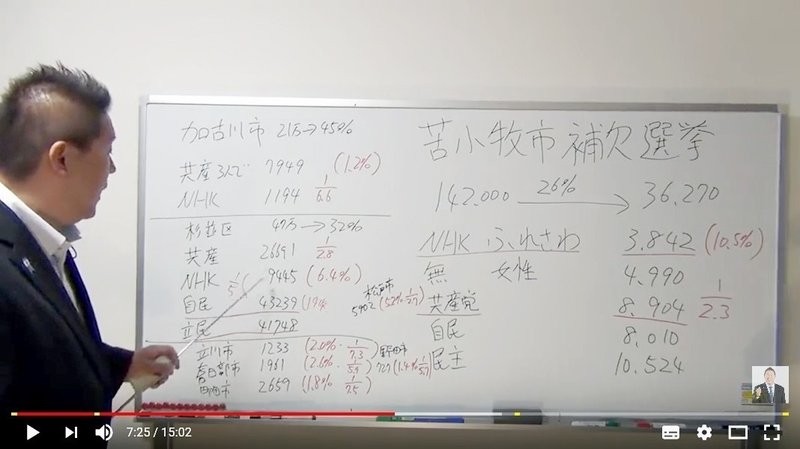 加古川市 21万→45%
共産3人で 7949 (1.2%)
NHK 1194 1/6.6
杉並区 47万→32%
共産 26691 1/2.8
NHK 1/5( 9445 (6.4%)
自民 43239
立民 41748
立川市 1233 (2.0% 1/7.3)
春日部市 1961 (2.6% 1/5.9)
2659 (1.8% 1/7.5)
松戸市
5902
野田市
(1.4%
苫小牧市 補欠選挙
142.000 26%→ 36.270
NHK ふれさわ 3.842 (10.5%)
無 女性 4.990
共産党 8.904 1/2.3
自民 8.010
民主 10.524
7:25 / 15:02